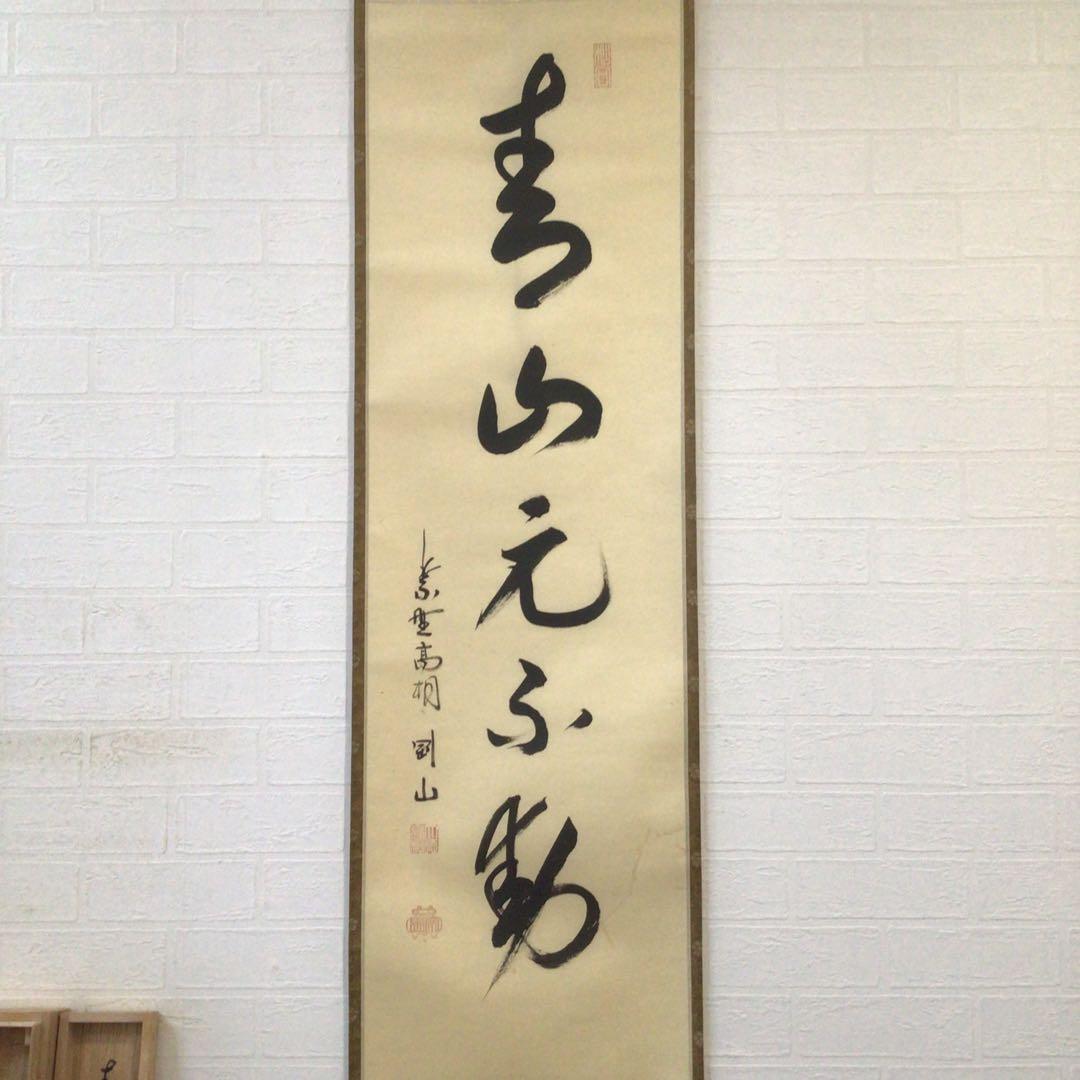 青山元不動
紫野高桐 剛山